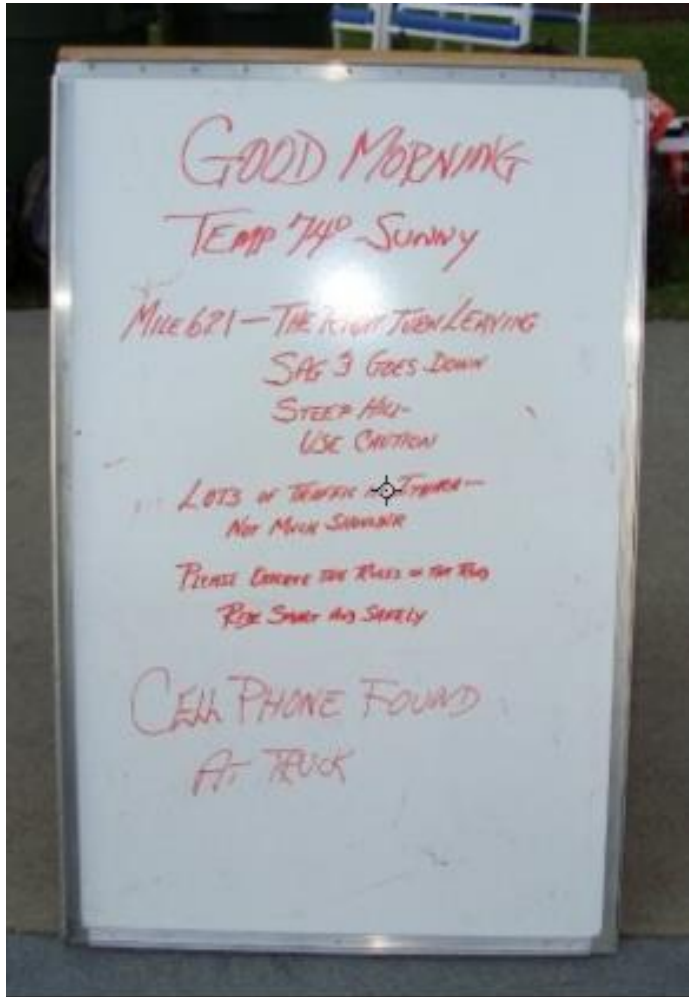 GOOD MORNING
TEMP 74° - SUNNY
MILE 621 — THE RIGHT TURN LEAVING
SAG 3 GOES DOWN
STEEP HILL -
USE CAUTION
LOTS OF TRAFFIC —
NOT MUCH SHOULDER
PLEASE OBSERVE THE RULES OF THE ROAD
RIDE SMART AND SAFELY
CELL PHONE FOUND
AT TRUCK